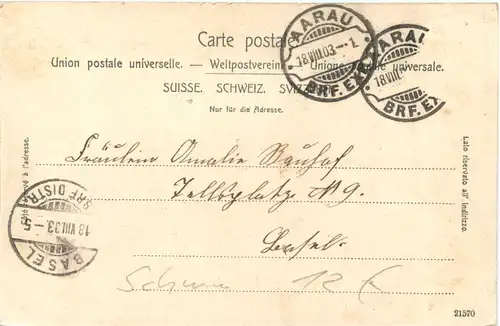 Carte postale.
Union postale universelle. — Weltpostverein. — Unione postale universale.
SUISSE. SCHWEIZ. SVIZZERA.
Nur für die Adresse.
AARAU
18.VIII.03.–1.
BRF.EXP.
AARAU
18.VIII.
BRF.EX
Côté réservé à l'adresse.
Lato riservato all' indirizzo.
Fräulein Amalie
Tellsplatz № 9.
Basel.
BRF. DISTR.
18.VIII.03.–5
BASEL
12
21570